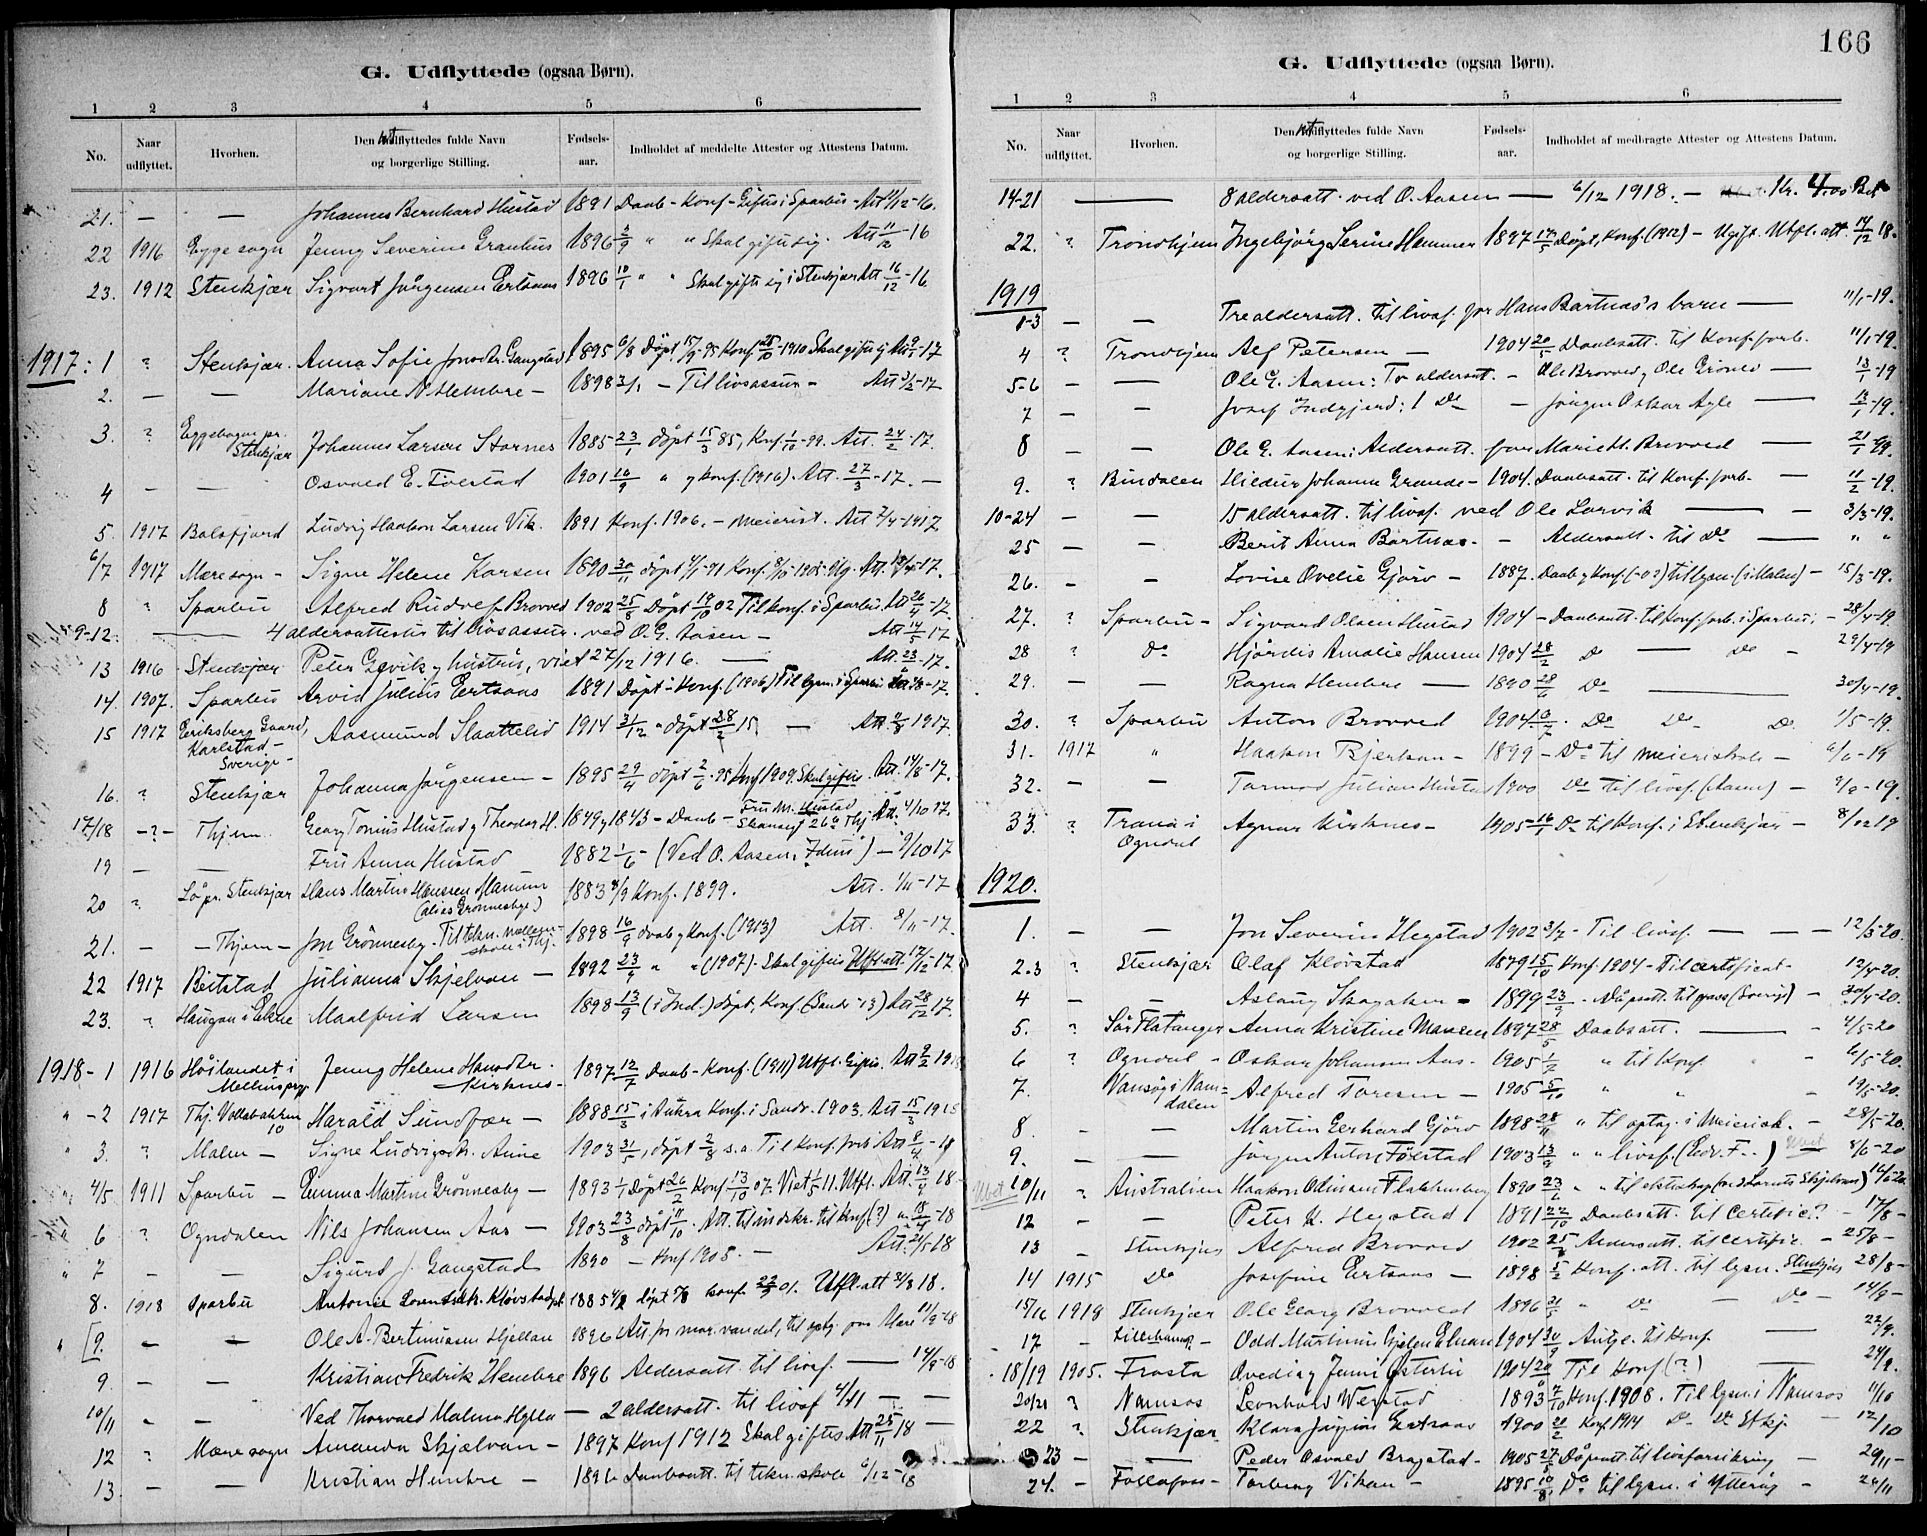 G. Udflyttede (ogsaa Børn).
1 2 3 4 5 6
No. Naar udflyttet. Hvorhen. Den udflyttedes fulde Navn og borgerlige Stilling. Fødsels-aar. Indholdet af meddelte Attester og Attestens Datum.
21. — — Johannes Bernhard Hustad 1891 Daab - Konf - Giftes i Sparbu - Att 11/12-16.
22 1916 Egge sogn Jenny Severine 1896 " " Skal gifte sig. Att 11/12-16
23. 1912 Stenkjær Sigvart Jørgensen Eertsaas 1896 10/1 " " Skal gifte sig i Stenkjær Att 16/12-16
1917: 1 ? Stenkjær. Anna Sofie Gangstad 1895 6/8 Døpt 15/9-95 Konf. 25/10-1910 Skal gifte sig Att 9/1-17
2. — — Mariane N. Hembre - 1898 3/1 - Til livsassur - Att 3/2-17
3. ? Eggebogen pr. Stenkjær Johannes Larsen Stornes 1885 23/1 døpt 15/3 85, Konf. 1/10-99. Att. 24/2-17.
4 — — Osvald E. Foestad 1901 " og konf. (1916). Att. 27/3-17. —
5. 1917 Balsfjord Ludvig Haakon Larsen Vik. 1891 Konf. 1906. - meierist. Att 2/4-1917
6/7 1917 Mære sogn - Signe Helene Karsen 1890 30/11 døpt 4/1-91 Konf. 8/10-1905. Ug. Att. -17.
8 " Sparbu Alfred Rudolf Brovold 1902 25/8 Døpt 19/10 02 Til konf. i Sparbu. Att 26/4-17.
9-12: — 4 aldersattester til livsassur. ved O. G. Aasen - Att 14/5-17
13 1916 Stenkjær Peter Gjevik og hustru, viet 27/12 1916. — Att. 23/6-17.
14. 1907. Sparbu Arvid Julius Eertsaas 1891 Døpt - Konf. (1906) Til lysn. i Sparbu -17.
15 1917 Eeriksberg Gaard, Karlstad - Sverige - Aasmund Slaattelid 1914 31/12 " døpt 28/2 15 — Att 1917.
16. ? Stenkjær Johanna Jørgensen - 1895 29/4 døpt 2/6-95 Konf 1909. Skal giftes. Att. 14/8-17.
17/18 -?- Thjem. Georg Tonius Hustad og Theodor H. 1849 og 1843 - Daab - Fru M. Hustad Skansegt 26 Thj. Att. 4/10 17.
19 — — Fru Anna Hustad 1882 1/6 - (Ved O. Aasen, "Idun") - 9/10 17
20 ? Lø pr. Stenkjær Hans Martin Hanssen Hamnu (alias Grønnesbye) 1883 Konf. 1899. Att. 1/11-17
21. — - Thjem - Jon Grønnesby. Til tekn. mellem-skole i Thj. 1898 16/9 daab og Konf. (1913) Att. 8/11-17.
22 1917 Beitstad Julianna Skjelvan — 1892 23/9 " " (1907). Skal giftes Utfl. att. 17/12-17
23. " Haugan i Ekne Maalfrid Larsen 1898 13/9 (i Ind.) døpt, Konf. (Sandv -13) Att 28/12 17.
1918 - 1 1916 Høilandet i Jenny Helene Hansdtr. Kirknes - 1897 12/7 Daab - Konf. (1911) Utfl. Giftes. Att 9/2 1918
" - 2 1917 Thj. Vollabakken 10 Harald Sundfær - 1888 15/3 i Aukra Konf. i Sandv. 1903. Att 15/3 1918
" 3. ? Malm - Signe Ludvigsdtr. Aune 1903 31/5, døpt 2/8 s.a. Til Konf. forb. Att 8/4-18
4/5 1911 Sparbu - Emma Martine Grønnesby - 1893 1/1 Døpt 26/2 Konf. 13/10 07. Viet 1/5 11. Utfl. Att. 13/4 18 -
6 ? Ogndalen Nils Johansen Aas - 1903 23/8 døpt /10. Att. til indskr. til konf (?) " 18/4-18
" 7 — — Sigurd J. Gangstad 1890 - Konf 1905. — Att. 21/5 18
8. 1918 Sparbu Antonie Kløvstad 1885 døpt konf. 01. Utfl. att 18.
" [9. — — Ole A. Bertinussen Hjellan 1896 Att. for mor. vandel, til optj. paa Mære 11/9-18
9 — — Kristian Fredrik Hembre 1896 Aldersatt. til livsf. — 14/9-18
10/11 — — Ved Thorvald Malmo Hylla - 2 aldersatt. til livsf 4/11 — —
12 " Mære sogn Amanda Skjælvan - 1897 Konf 1912 Skal giftes Att 25/11 18 —
13. — — Kristian Hembre — 1896 Daabsatt. til tekn. skole 6/12-18
166
G. Udflyttede (ogsaa Børn).
1 2 3 4 5 6
No. Naar udflyttet. Hvorhen. Den udflyttedes fulde Navn og borgerlige Stilling. Fødsels-aar. Indholdet af medbragte Attester og Attestens Datum.
14-21 — 8 aldersatt. ved O. Aasen — 6/12 1918. — Kr. 4.00 Bet
22. ? Trondhjem Ingebjørg Serine Hammer 1897 Døpt, Konf. (1912) - Ugift. Utfl. att. 14/12 18.
1919
1-3 — — Tre aldersatt. til livsf. for Hans Bartnæs's barn — 11/1-19.
4 ? Trondhjem Alf Petersen — 1904 20/5 Daabsatt. til Konf. forb. 11/1-19.
5-6 — — Ole G. Aasen: To aldersatt. - Ole Brovold og Ole — 13/1-19
7 — — Josef Indgjerd: 1 Do — Jørgen Oskar — 13/1-19.
8 — — Ole G. Aasen: Aldersatt. for Marie H. Brovold — 21/1-19.
9. ? Bindalen Hildur Johanna Grande - 1904. Daabsatt. til Konf. forb. — 11/2-19.
10-24 — — 15 aldersatt. til livsf. ved Ole Lorvik — - 3/3-19.
25 — — Berit Anna Bartnæs. - Aldersatt. til Do — " "
26. — — Lovise Ovelie Gjørv - 1887. Daab og Konf. (-02) til lysn. (i Malm) - 15/3-19.
27. ? Sparbu - Sigvard Olsen Hustad 1904 - Daabsatt. til Konf. forb. i Sparbu; - 28/4-19
28 ? Do Hjørdis Amalie Hansen 1904 28/2 Do — Do - 29/4-19
29. — — Ragna Hembre — 1890 28/6 Do — 30/4-19.
30. ? Sparbu Anton Brovold 1904 6/7. Do Do Do 1/5-19.
31. 1917 " Haakon Bjerkan - 1899 - Do til meieriskole - 6/6-19
32. — — Tormod Julian Hustad 1900 Do til livsf. (Aasen) - -19.
33. ? Trana i Ogndal Agnar Kirknes - 1905 16/1 Do til Konf. i Stenkjær - 8/10 19
1920.
1. — — Jon Severin Hegstad 1902 3/7 - Til livsf. — — - 12/3-20.
2-3 ? Stenkjær Olaf Kløvstad 1879 15/10 Konf. 1904 - Til certificat - 12/4-20.
4 — — Aslaug Skagaken - 1899 23/9 - Dåpsatt. til pass (Sverige) - 30/4-20.
5. ? Sør Flatanger Anna Kristine Monsen 1897 28/5 Daabsatt. — 4/5-20
6 ? Ogndal - Oskar Johansen Aas. 1905 1/7 " til Konf. " - 6/5-20.
7. Vansøy i Namdalen Alfred Toresen - 1905 5/10 " " - 19/5-20.
8. — — Martin Gerhard Gjørv 1898 28/11 " til optag. i Meierisk. - 28/5-20.
9. — — Jørgen Anton Føestad 1903 13/9 " " livsf. (Edv. F..) Ubet 8/6-20
Ubet 10/11 " Australien Haakon Odinsen Flekkenberg 1890 23/6 " " til ekteskap (med Skjelvan) 16/6 20
12 — — Peter K. Hegstad 1891 22/10 Daabsatt. til certific.? - 17/8 -
13 — Stenkjær Alfred Brovold 1902 25/8 Aldersatt. til certific. - 25/8 -
14 1915 Do Josefine Eertsaas - 1898 5/2 Konf. att. til lysn. Stenkjær 28/8 -
15/16 1918 Stenkjær Ole Georg Brovold 1896 " Do — Do - 14/9 -
17 — Lillehamm. - Odd Martinius Gjelen Elnan 1904 30/9 Antje. til Konf. — 22/9.
18/19 1905. Frosta Ovedie Jenni Østerli 1904 20/8 Til Konf (?) — 24/9.
20/21 ? Namsos Leonhard Werstad 1893 /10 Konf. 1908. Til lysn. i Namsos 11/10
22 ? Stenkjær Klara Eertsaas 1900 20/2 Konf 1914 Do Do Stkj. - 12/10
23 — — Peder Osvald Bragstad - 1905 27/8 Dåpsatt. til livsforsikring - 29/11 -
24. — Follafoss - Torberg Vikan - 1895 10/8 Do til lysn. i Ytterøy - 24/11